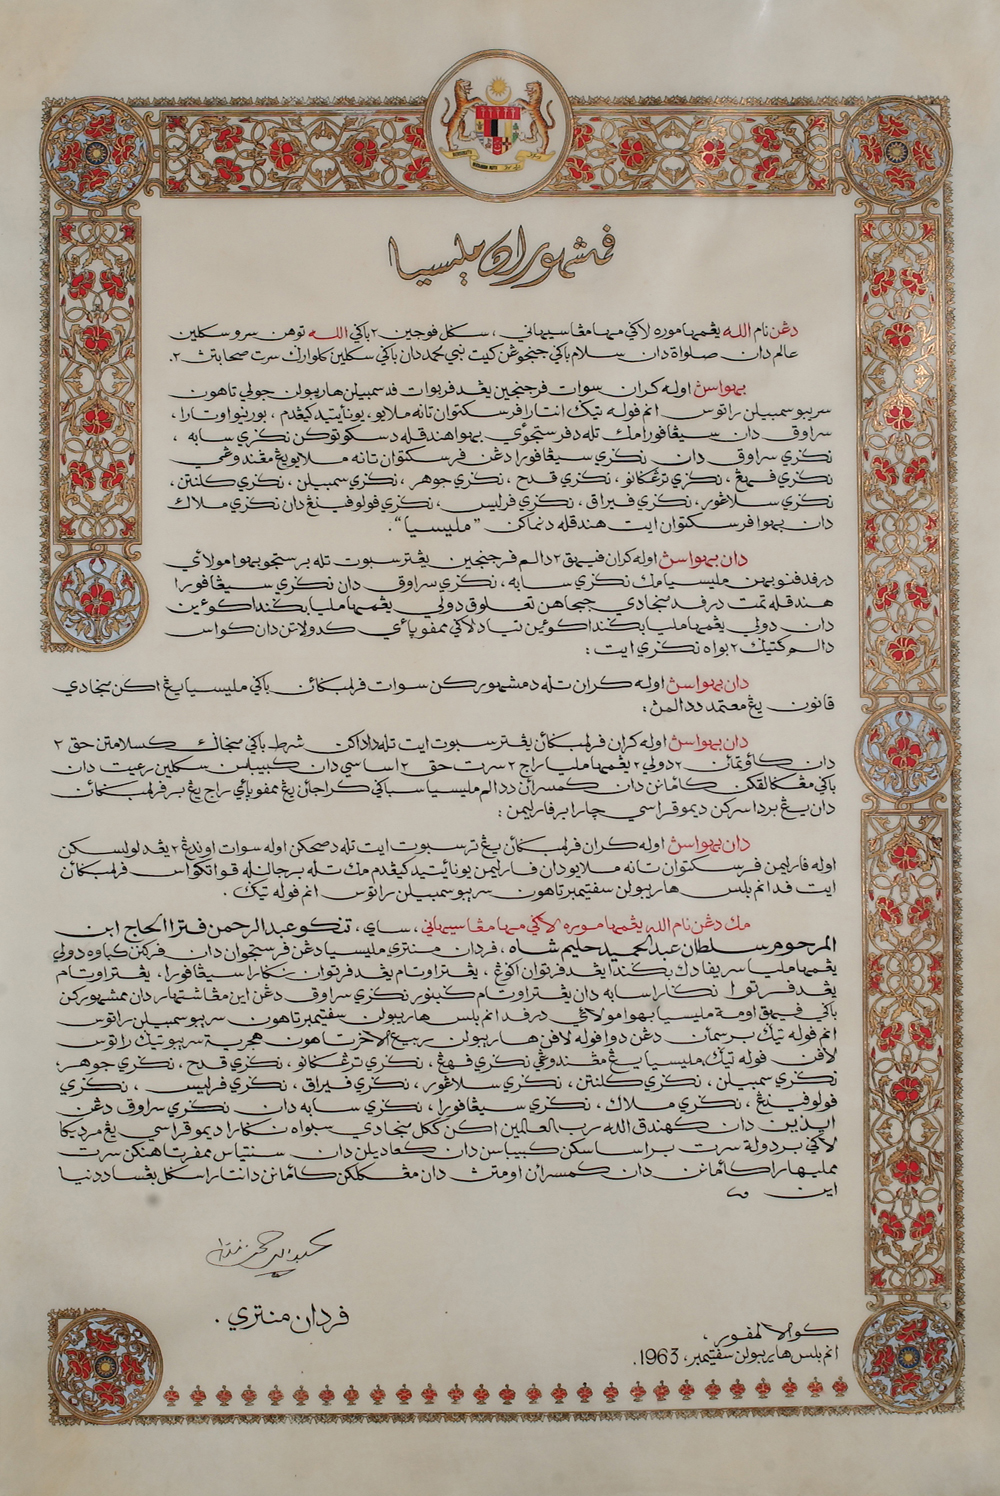 ڤمشهوران مليسيا
دڠن نام الله يڠمها موره لاڬي مها مڠاسيهاني، سڬل ڤوجين٢ باڬي الله توهن سرو سكلين
عالم دان صلواة دان سلام باڬي جنجوڠن كيت نبي محمد دان باڬي سكلين كلوارڬ سرت صحابتڽ٢.
بهواسڽ اوله كران سوات ڤرجنجين يڠ دڤربوات ڤد سمبيلن هاريبولن جولي تاهون
سريبو سمبيلن راتوس انم ڤوله تيڬ انتارا ڤرسكتوان تانه ملايو، يونايتيد كيڠدم، بورنيو اوتارا،
سراوق دان سيڠاڤورا مك تله دڤرستجوءي بهوا هندقله دسكوتوكن نڬري سابه،
نڬري سراوق دان نڬري سيڠاڤورا دڠن ڤرسكتوان تانه ملايو يڠ مڠندوڠي
نڬري ڤهڠ، نڬري ترڠڬانو، نڬري قدح، نڬري جوهر، نڬري سمبيلن، نڬري كلنتن،
نڬري سلاڠور، نڬري ڤيراق، نڬري ڤرليس، نڬري ڤولو ڤينڠ دان نڬري ملاك
دان بهوا ڤرسكتوان ايت هندقله دنماكن "مليسيا".
دان بهواسڽ اوله كران ڤيهق٢ دالم ڤرجنجين يڠ ترسبوت تله برستوجو بهوا مولاءي
درڤد ڤنوبوهن مليسيا مك نڬري سابه، نڬري سراوق دان نڬري سيڠاڤورا
هندقله تمت درڤد منجادي ججاهن تعلوق دولي يڠمها مليا بڬندا كوئين
دان دولي يڠمها مليا بڬندا كوئين تياد لاڬي ممڤوياءي كدولاتن دان كواس
دالم كتيڬ٢ بواه نڬري ايت:
دان بهواسڽ اوله كران تله دمشهوركن سوات ڤرلمباڬاءن باڬي مليسيا يڠ اكن منجادي
قانون يڠ معتمد ددالمڽ:
دان بهواسڽ اوله كران ڤرلمباڬاءن يڠ ترسبوت ايت تله داداكن شرط باڬي منجاڬ كسلامتن حق٢
دان كاءوتماءن٢ دولي٢ يڠمها مليا راج٢ سرت حق٢ اساسي دان كبيبسن سكلين رعيت دان
باڬي مڠكالقكن كأمانن دان كتنترامن ددالم مليسيا سباڬي كراجاءن يڠ ممڤوياءي راج يڠ برڤرلمباڬاءن
دان يڠ برداسركن ديموقراسي چارا برڤارليمن:
دان بهواسڽ اوله كران ڤرلمباڬاءن يڠ ترسبوت ايت تله دصحكن اوله سوات اوندڠ٢ يڠ دلولوسكن
اوله ڤارليمن ڤرسكتوان تانه ملايو دان ڤارليمن يونايتيد كيڠدم مك تله برجالنله قوات كواس ڤرلمباڬاءن
ايت ڤد انم بلس هاريبولن سڤتيمبر تاهون سريبو سمبيلن راتوس انم ڤوله تيڬ.
مك دڠن نام الله يڠمها موره لاڬي مها مڠاسيهاني، ساي، تنكو عبدالرحمن ڤترا الحاج ابن
المرحوم سلطان عبدالحميد حليم شاه، ڤردان منتري مليسيا دڠن ڤرستوجوان دان ڤركنن كباوه دولي
يڠمها مليا سري ڤادك بڬندا يڠدڤرتوان اڬوڠ، يڠ ترأوتام يڠدڤرتوان نڬارا سيڠاڤورا، يڠ ترأوتام
يڠدڤرتوا نڬارا سابه دان يڠ ترأوتام ڬبنور نڬري سراوق دڠن اين مڠاشتهار دان ممشهوركن
باڬي ڤيهق اومة مليسيا بهوا مولاءي درڤد انم بلس هاريبولن سڤتيمبر تاهون سريبو سمبيلن راتوس
انم ڤوله تيڬ برسمأن دڠن دوا ڤوله لاڤن هاريبولن ربيع الآخر تاهون هجرية سريبو تيڬ راتوس
لاڤن ڤوله تيڬ مليسيا يڠ مڠندوڠي نڬري ڤهڠ، نڬري ترڠڬانو، نڬري قدح، نڬري جوهر،
نڬري سمبيلن، نڬري كلنتن، نڬري سلاڠور، نڬري ڤيراق، نڬري ڤرليس، نڬري
ڤولو ڤينڠ، نڬري ملاك، نڬري سيڠاڤورا، نڬري سابه دان نڬري سراوق دڠن
ايذين دان كهندق الله رب العالمين اكن ككل منجادي سبواه نڬارا ديموقراسي يڠ مرديكا
لاڬي بردولة سرت براساسكن كبيبسن دان كعاديلن دان سنتياس ممڤرتاهنكن سرت
مميليهارا كأمانن دان كتنترامن اومتڽ دان مڠكلكن كأمانن دانتارا سڬل بڠسا ددنيا
اين
ڤردان منتري.
كوالا لمڤور،
انم بلس هاريبولن سڤتيمبر، 1963.